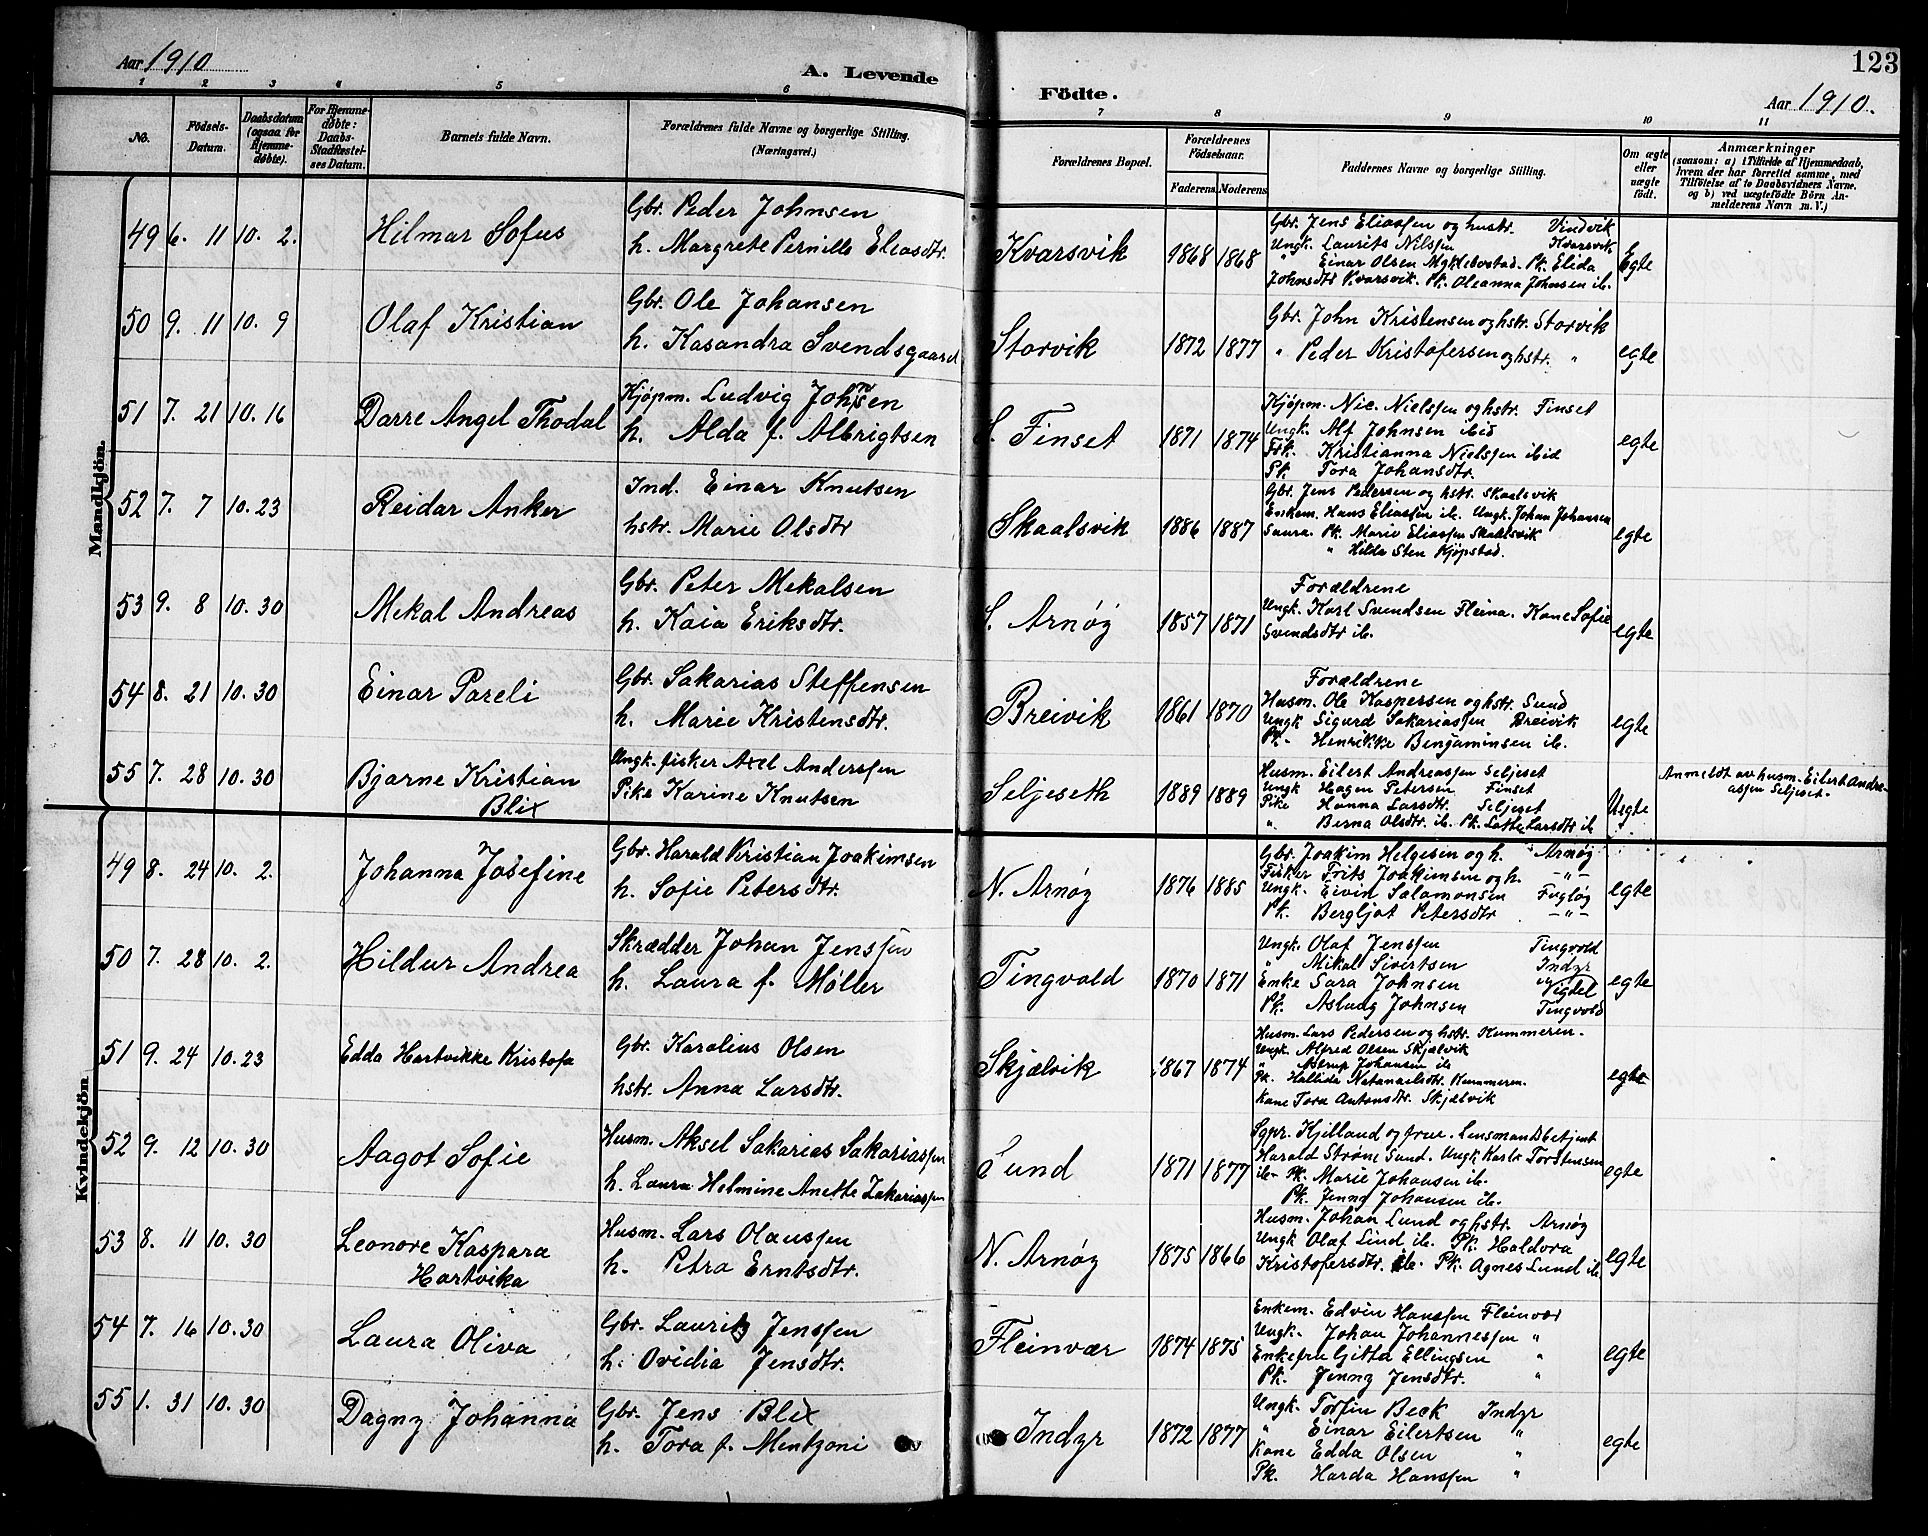 Aar 1910
A. Levende
Födte.
123
Aar 1910.
1 2 3 4 5 6 7 8 9 10 11
No.
Födsels-Datum.
Daabsdatum (ogsaa for Hjemme-døbte).
For Hjemme-døbte: Daabs-Stadfæstel-ses Datum.
Barnets fulde Navn.
Forældrenes fulde Navne og borgerlige Stilling.
(Næringsvei.)
Forældrenes Bopæl.
Forældrenes Födselsaar.
Faderens. Moderens.
Faddernes Navne og borgerlige Stilling.
Om ægte eller uægte født.
Anmærkninger
(saasom: a) i Tilfælde af Hjemmedaab, hvem der har forrettet samme, med Tilføielse af to Daabsvidners Navne, og b) ved uægtefødte Börn An-melderens Navn m. V.)
Mandkjön.
49 6. 11 10. 2. Hilmar Sofus
Gbr. Peder Johnsen
h. Margrete Pernille Eliasdtr.
Kvarsvik 1868 1868
Gbr. Jens Eliassen og hustr. Vindvik
Ungk. Laurits Nilssen Kvarsvik
" Einar Olsen Myklebostad. Pk. Elida
Johnsdtr Kvarsvik. Pk. Oleanna Johnsen ib.
Egte
50 9. 11 10. 9 Olaf Kristian
Gbr. Ole Johansen
h. Kasandra Svendsgaard
Storvik 1872 1877
Gbr. John Kristensen og hstr. Storvik
" Peder Kristofersen og hstr. "
egte
51 7. 21 10. 16 Darre Angel Thodal
Kjøpm. Ludvig Johnsen
h. Alda f. Albrigtsen
S. Finset 1871 1874
Kjøpm. Nic. Nielssen og hstr. Finset
Ungk. Alf Johnsen ibid
Frk. Kristianna Nielssen ibid
Pk. Tora Johansdtr.
egte
52 7. 7 10. 23 Reidar Anker
Ind. Einar Knutsen
hstr. Marie Olsdtr
Skaalsvik 1886 1887
Gbr. Jens Pedersen og hstr. Skaalsvik
Enkem. Hans Eliassen ib. Ungk. Johan Johansen
Saura. Pk. Marie Eliassen Skaalsvik
" Hilda Sten Kjøpstad.
egte
53 9. 8 10. 30 Mekal Andreas
Gbr. Peter Mekalsen
h. Kaia Eriksdtr.
S. Arnøy 1857 1871
Forældrene
Ungk. Karl Svendsen Fleina. Kone Sofie
Svendsdtr ib.
egte
54 8. 21 10. 30 Einar Pareli
Gbr. Sakarias Steffensen
h. Marie Kristensdtr.
Breivik 1861 1870
Forældrene
Husm. Ole Kaspersen og hstr. Sund
Ungk Sigurd Sakariassen Breivik
Pk. Henrikke Benjaminsen ib.
egte
55 7. 28 10. 30 Bjarne Kristian
Blix
Ungk. fisker Axel Anderssen
Pike Karine Knutsen
Seljeseth 1889 1889
Husm. Eilert Andreassen Seljeset
Ungk Hagen Petersen Finset
Pike Hanna Larsdtr. Seljeset
" Berna Olsdtr. ib. Pk. Lotte Larsdtr ib
Uegte
Anmeldt av husm. Eilert Andre-
assen Seljeset.
Kvindekjön
49 8. 24 10. 2. Johanna Josefine
Gbr. Harald Kristian Joakimsen
h. Sofie Petersdtr.
N. Arnøy 1876 1885
Gbr. Joakim Helgesen og h. Arnøy
Fisker Frits Joakimsen og h. -"-
Ungk. Eivin Salamonsen Fugløy
Pk. Bergljot Petersdtr -"-
egte
50 7. 28 10. 2. Hildur Andrea
Skrædder Johan Jenssen
h. Laura f. Møller
Tingvold 1870 1871
Ungk. Olaf Jenssen Tingvold
" Mikal Sivertsen Indyr
Enke Sara Johnsen Vigdel
Pk. Aslaug Johnsen Tingvold
egte
51 9. 24 10. 23 Edda Hartvikke Kristofa
Gbr. Karolius Olsen
hstr. Anna Larsdtr.
Skjælvik 1867 1874
Husm. Lars Pedersen og hstr. Kummeren.
Ungk. Alfred Olsen Skjælvik
" Astrup Johansen ib
Pk. Hallida Natanaelsdtr. Kummeren.
Kone Tora Antonsdtr. Skjælvik
egte
52 9. 12 10. 30 Aagot Sofie
Husm. Aksel Sakarias Sakariassen
h. Laura Helmine Anette Zakariassen
Sund 1871 1877
Sgpr. Kjelland og frue. Lensmandsbetjent
Harald Strøm Sund. Ungk Karl Torstensen
ib- Pk. Marie Johansen ib.
Pk. Jenny Johansen ib.
egte
53 8. 11 10. 30 Leonore Kaspara
Hartvika
Husm. Lars Olaussen
h. Petra Erntsdtr.
N. Arnøy 1875 1866
Husm. Johan Lund og hstr. Arnøy
Ungk Olaf Lund ib. Pk. Haldora
Kristofersdtr. ib. Pk. Agnes Lund ib.
egte
54 7. 16 10. 30 Laura Oliva
Gbr. Lauritz Jenssen
h. Ovidia Jensdtr.
Fleinvær 1874 1875
Enkem. Edvin Hanssen Fleinvær
Ungk. Johan Johannessen "
Enkefru Gitta Ellingsen "
Pk. Jenny Jensdtr. "
egte
55 1. 31 10. 30 Dagny Johanna
Gbr. Jens Blix
h. Tora f. Mentzoni
Indyr 1872 1877
Ungk. Torfin Beck Indyr
" Einar Eilertsen "
Kone Edda Olsen "
Pk. Harda Hanssen "
egte